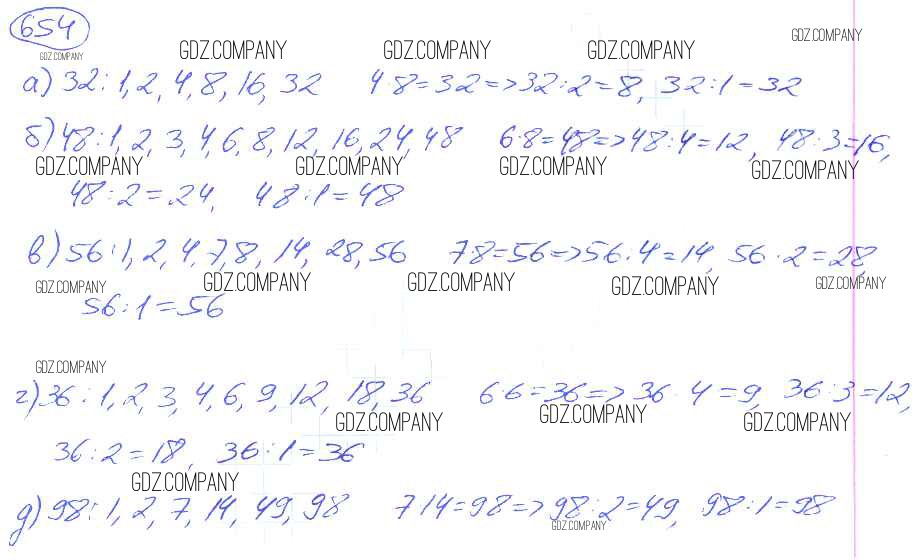 654
GDZ.COMPANY GDZ.COMPANY GDZ.COMPANY GDZ.COMPANY GDZ.COMPANY
а) 32 : 1, 2, 4, 8, 16, 32 4·8=32=>32:2=8, 32:1=32
б) 48 : 1, 2, 3, 4, 6, 8, 12, 16, 24, 48 6·8=48=>48:4=12, 48:3=16,
GDZ.COMPANY GDZ.COMPANY GDZ.COMPANY GDZ.COMPANY
48:2=24, 48:1=48
в) 56 : 1, 2, 4, 7, 8, 14, 28, 56 7·8=56=>56·4=14, 56·2=28,
GDZ.COMPANY GDZ.COMPANY GDZ.COMPANY GDZ.COMPANY GDZ.COMPANY
56:1=56
GDZ.COMPANY
г) 36 : 1, 2, 3, 4, 6, 9, 12, 18, 36 6·6=36=>36·4=9, 36:3=12,
GDZ.COMPANY GDZ.COMPANY GDZ.COMPANY
36:2=18, 36:1=36
GDZ.COMPANY
д) 98 : 1, 2, 7, 14, 49, 98 7 14=98=>98:2=49, 98:1=98
GDZ.COMPANY